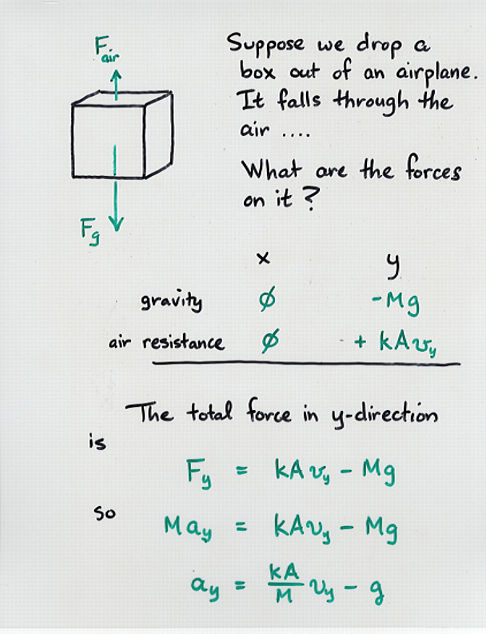 F air
Suppose we drop a
box out of an airplane.
It falls through the
air ....
What are the forces
on it ?
Fg
x y
gravity ∅ -Mg
air resistance ∅ + kAvy
The total force in y-direction
is
Fy = kAvy - Mg
so
May = kAvy - Mg
ay = kA/M vy - g